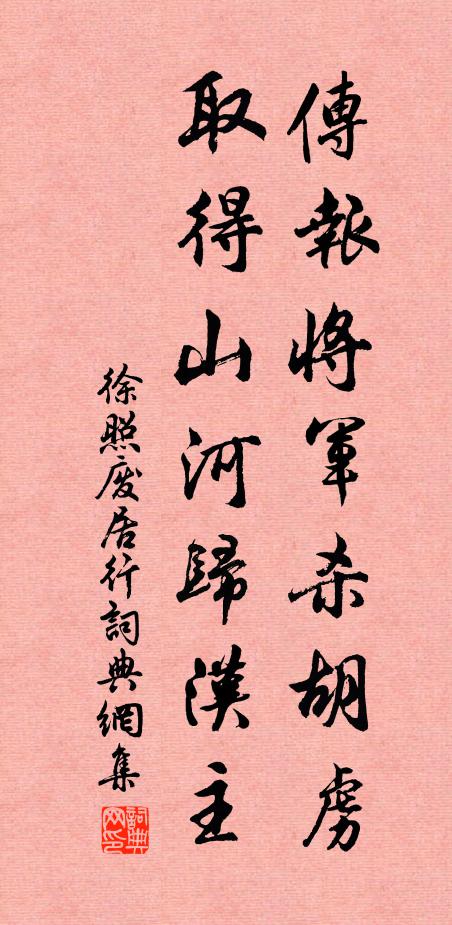 傳報將軍杀胡虜
取得山河歸漢主
徐照废居行詞典網集
詞典网印